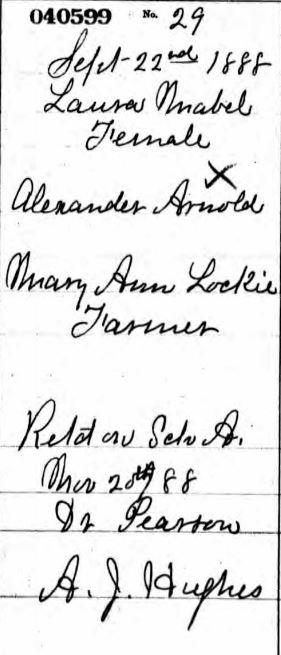 040599 No. 29
Sept 22nd 1888
Laura Mabel
Female
X
Alexander Arnold
Mary Ann Lockie
Farmer
Sch A.
Nov 20th 88
Dr Pearson
A. J. Hughes